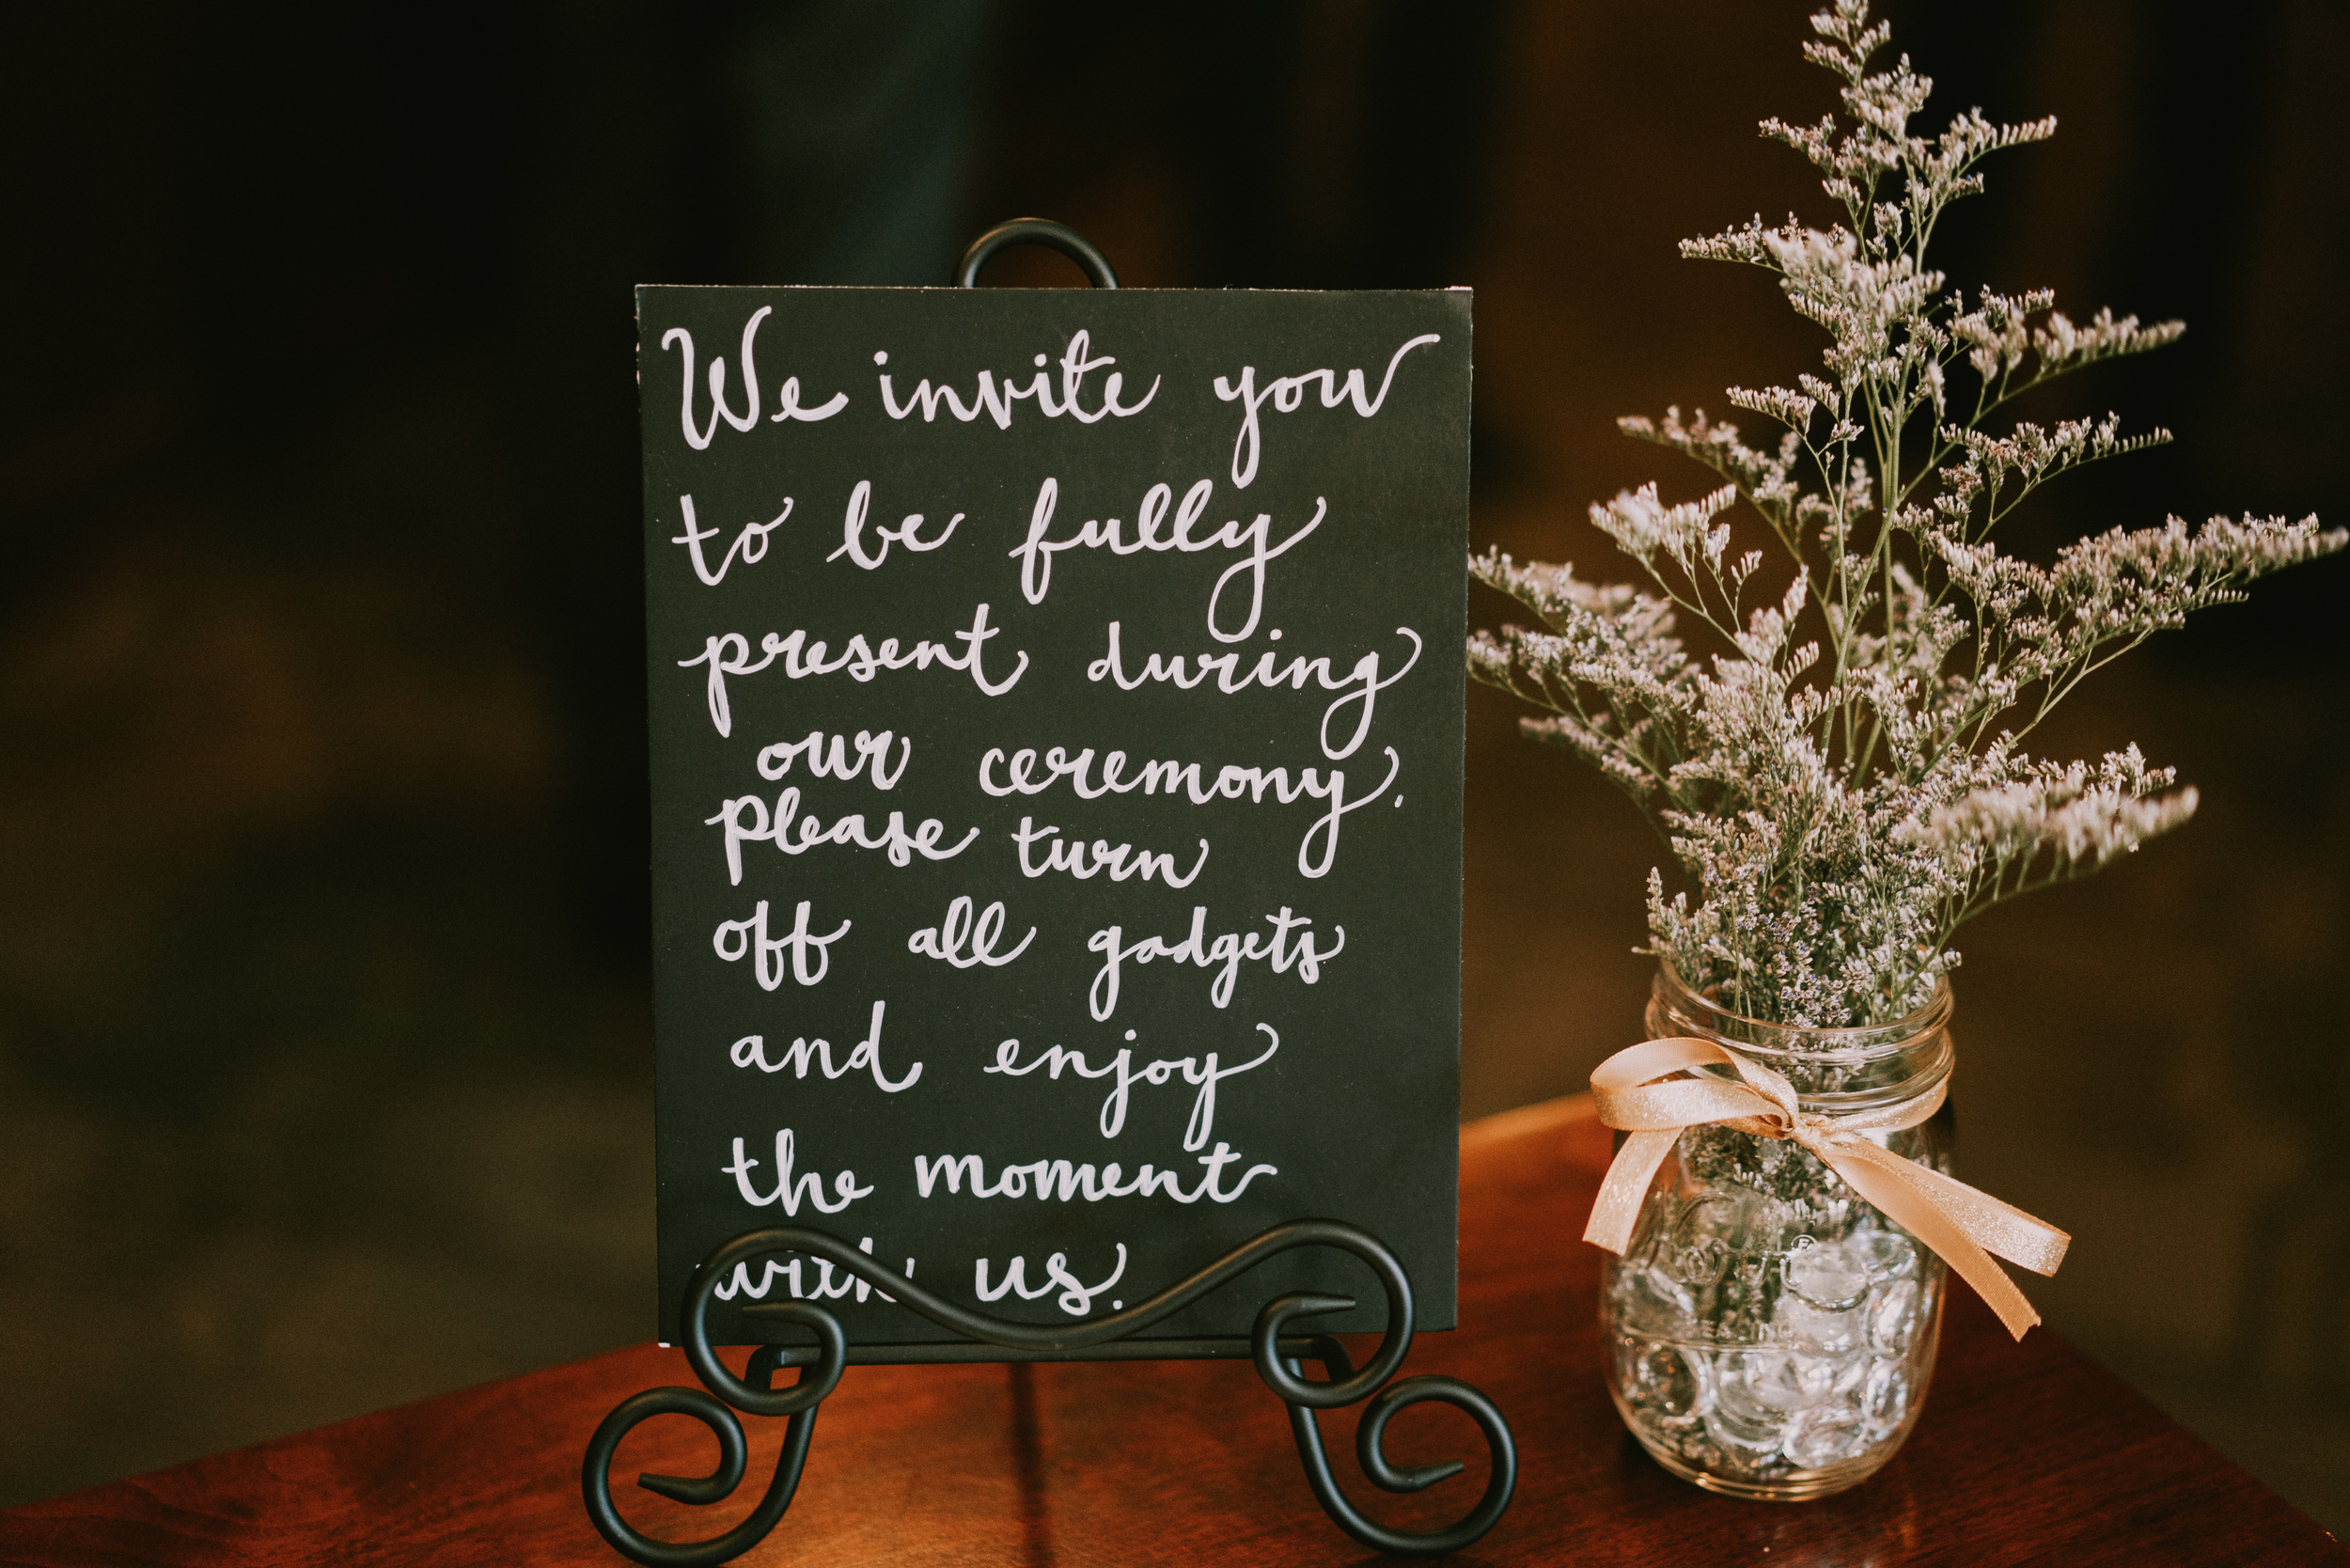 We invite you
to be fully
present during
our ceremony.
please turn
off all gadgets
and enjoy
the moment
with us.